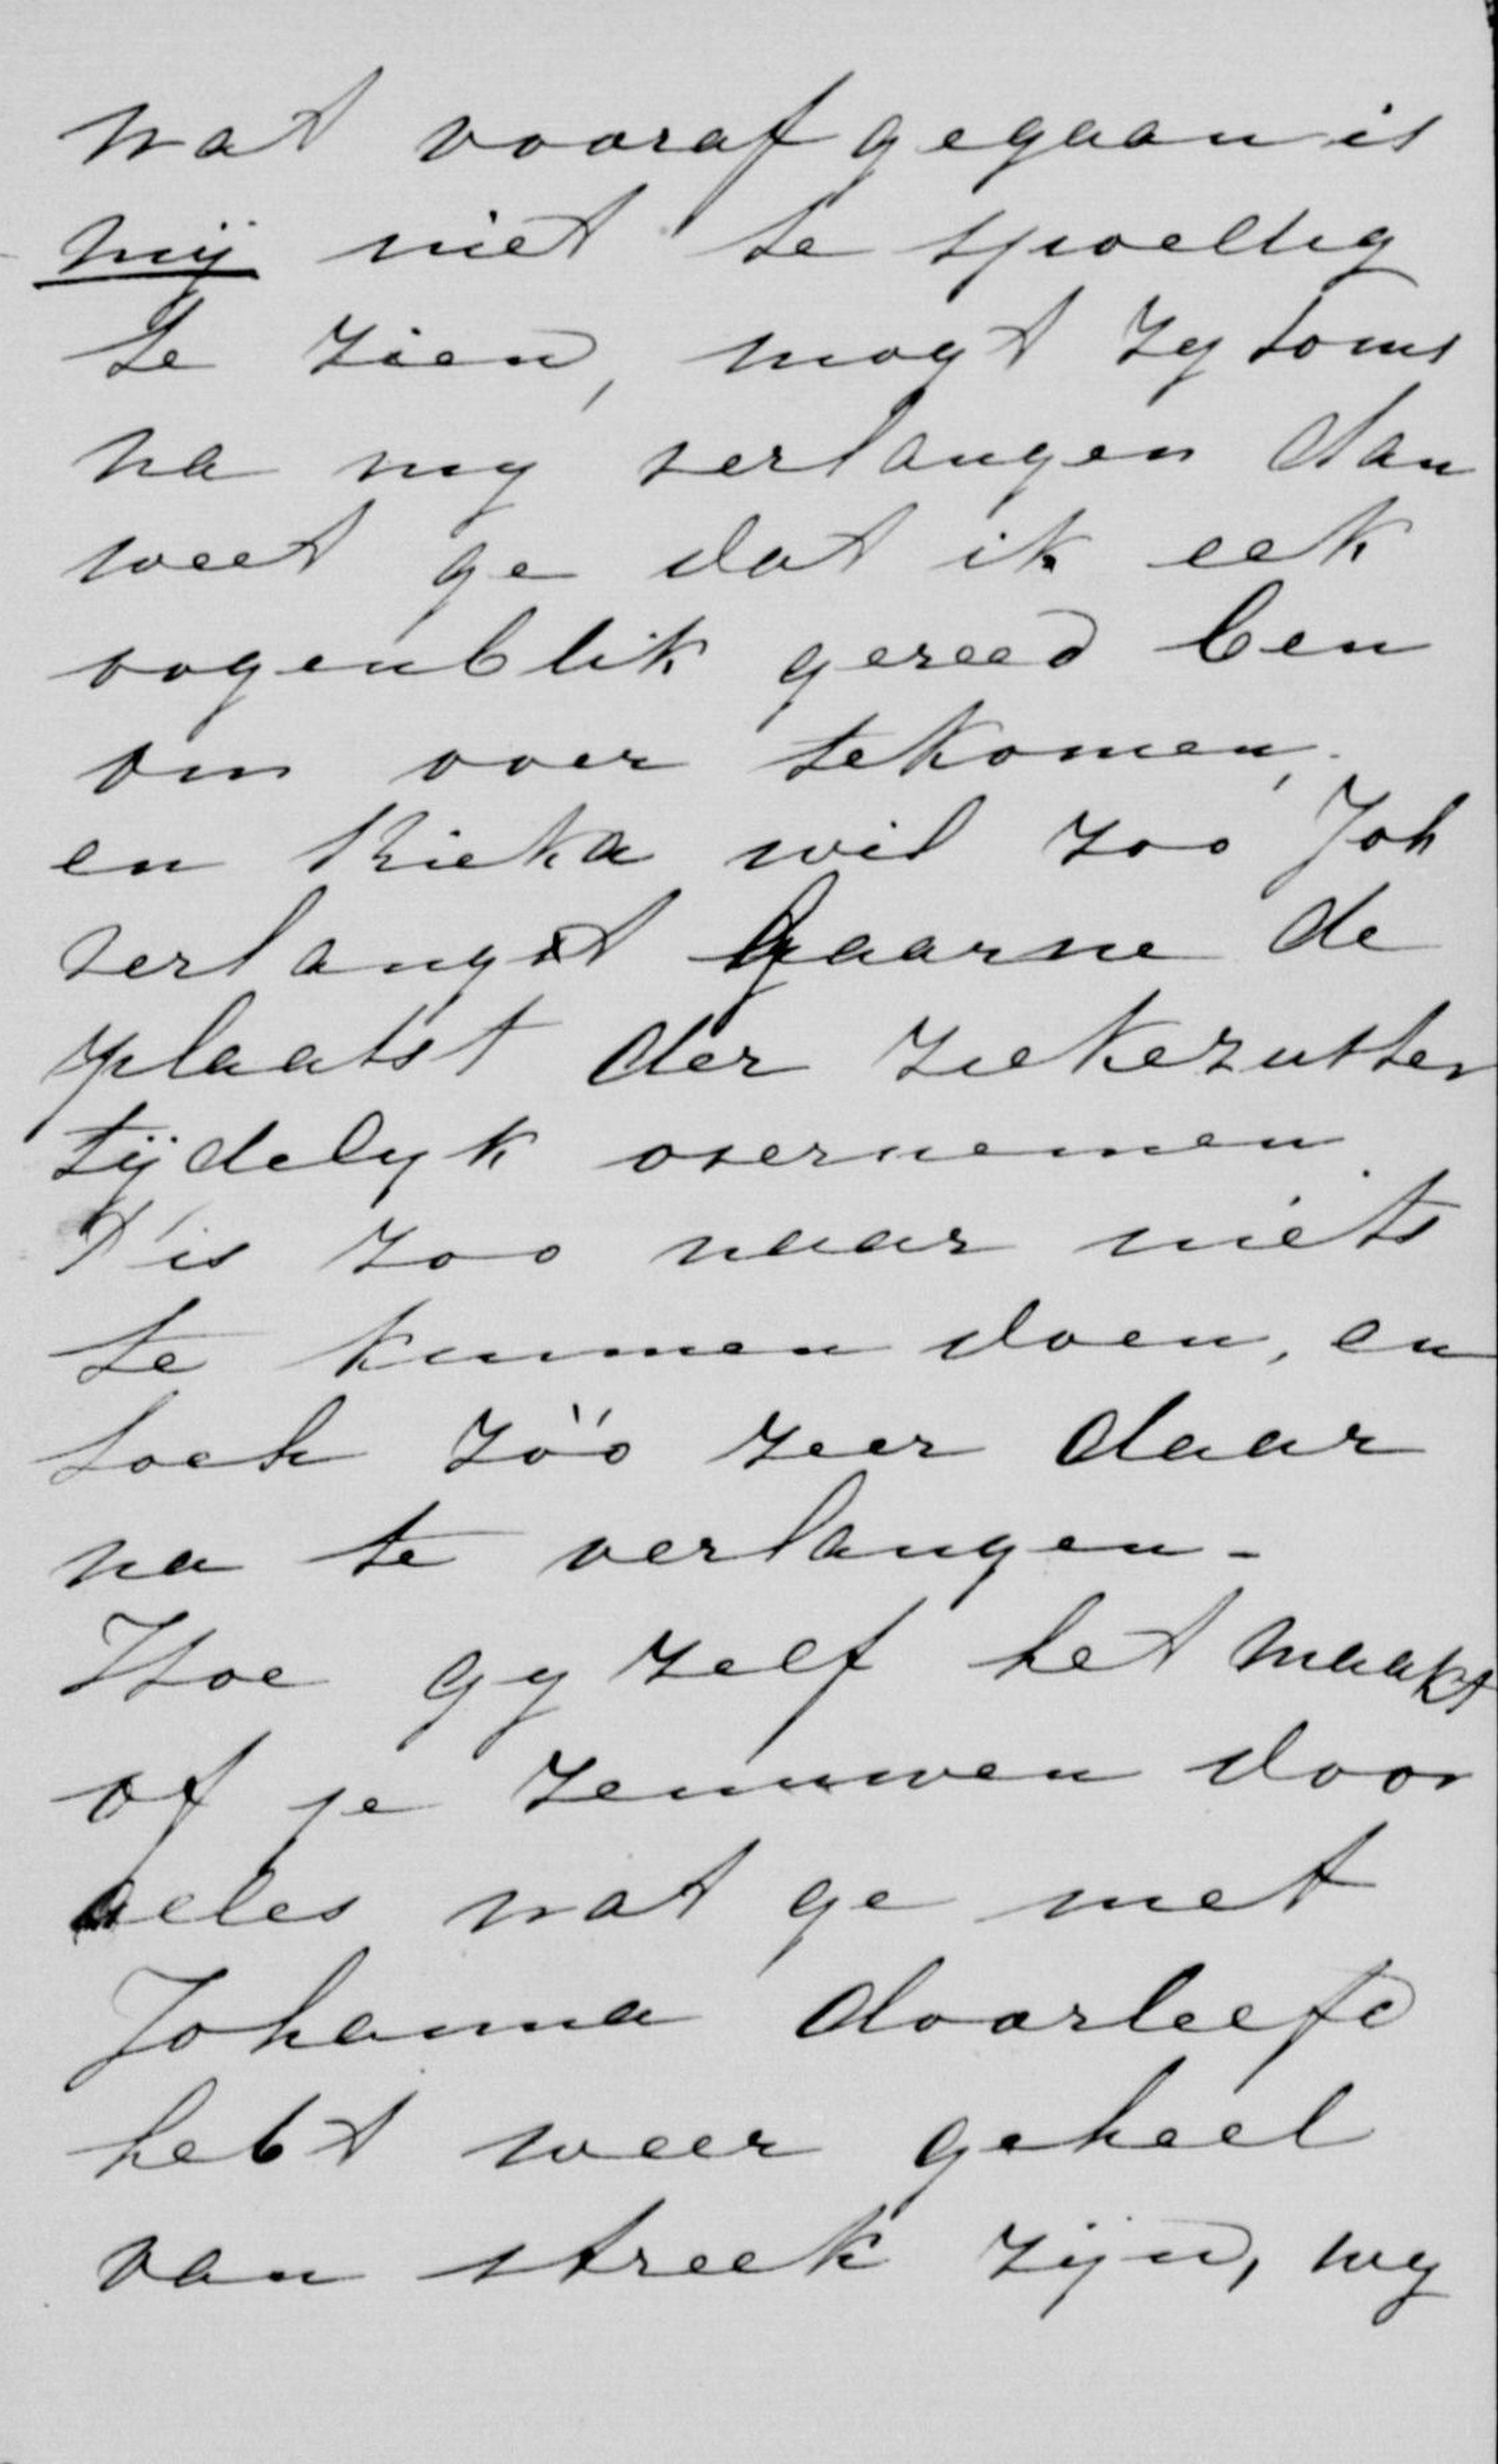 wat vooraf gegaan is
mij niet te spoedig
te zien, mogt zy soms
na my verlangen dan
weet ge dat ik elk
oogenblik gereed ben
om over te komen,
en Rieka wil zoo Joh
verlangt gaarne de
plaatst der ziekezuster
tijdelyk overnemen.
T'is zoo naar niets
te kunnen doen, en
toch zóó zeer daar
na te verlangen.
Hoe gy zelf het maakt
of je zenuwen door
alles wat ge met
Johanna doorleefd
hebt weer geheel
van streek zijn, wy